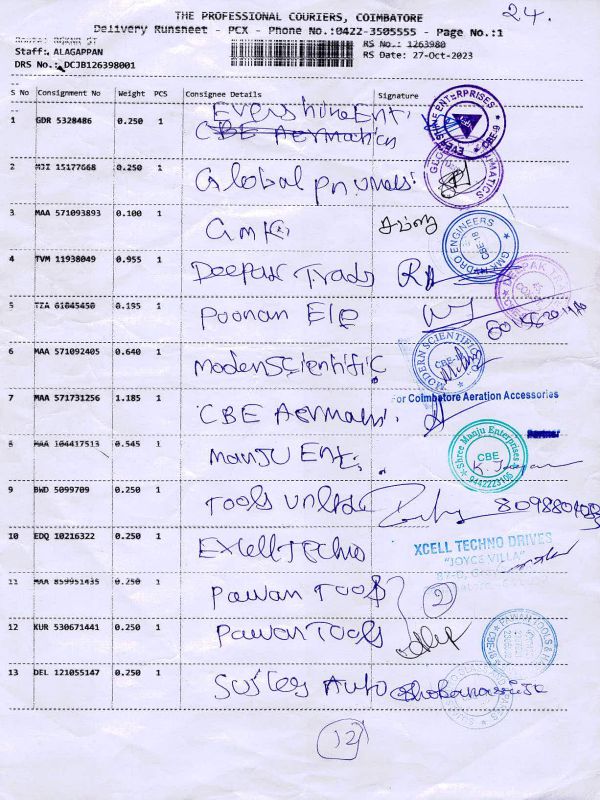 24.
THE PROFESSIONAL COURIERS, COIMBATORE
Delivery Runsheet - PCX - Phone No.:0422-3505555 - Page No.:1
Staff: ALAGAPPAN
RS No.: 1263980
DRS No.: DCJB126398001
RS Date: 27-Oct-2023
S No Consignment No Weight PCS Consignee Details Signature
1 GDR 5328486 0.250 1 Evershine Ent.
CBE Aermatics
EVERSHINE ENTERPRISES CBE-6
2 MJI 15177668 0.250 1 Global pnumas.
3 MAA 571093893 0.100 1 GMK
GMK HYDRO ENGINEERS CBE
4 TVM 11938049 0.955 1 Deepak Trads
DEEPAK
5 TZA 61845450 0.195 1 Poonan Ele
6 MAA 571092405 0.640 1 Moden Scientific.
MODERN SCIENTIFIC CBE
7 MAA 571731256 1.185 1 CBE Aermatis.
For Coimbatore Aeration Accessories
Partner
8 MAA 104417513 0.545 1 Manju Ent.
Shree Manju Enterprises CBE 9442223105
9 BWD 5099709 0.250 1 Tools Unltd
10 EDQ 10216322 0.250 1 Excell Techno
XCELL TECHNO DRIVES
"JOYCE VILLA"
11 MAA 859951435 0.250 1 Pawan Tools
2
12 KUR 530671441 0.250 1 Pawan Tools
PAWAN TOOLS &
13 DEL 121055147 0.250 1 Auto
12